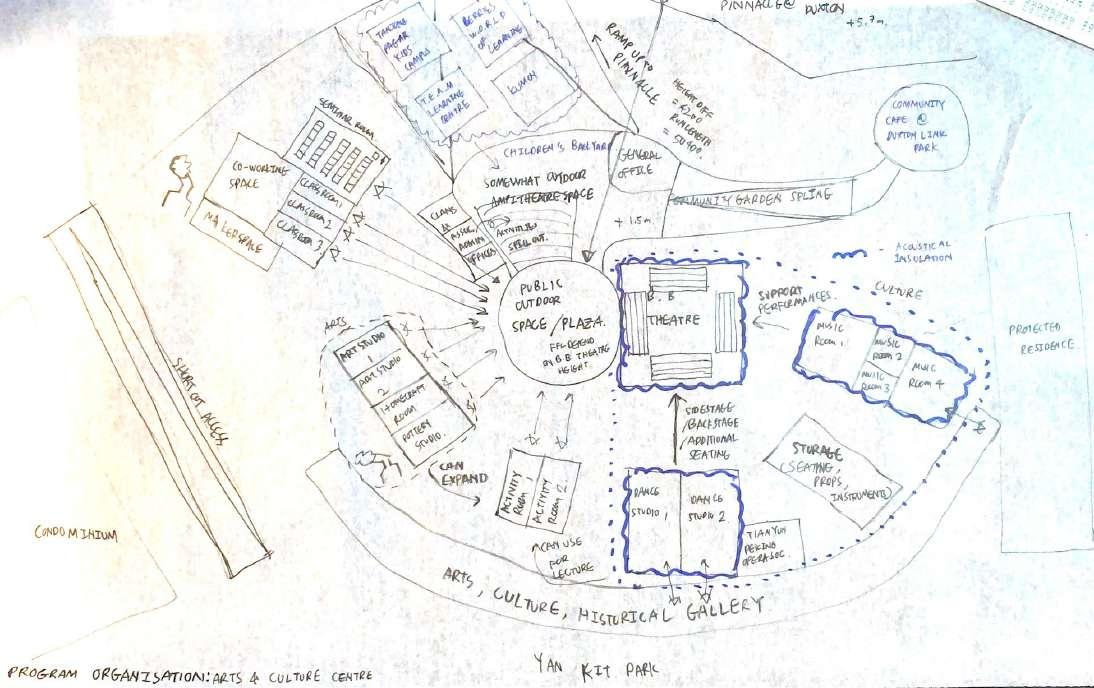 PINNACLE @ DUXTON
+5.7m
TANJONG
PAGAR
KIDS
CAMPUS
BERRIES
W.O.R.L.D
OF
LEARNING
T.E.A.M
LEARNING
CENTRE
KUMON
RAMP UP TO
PINNACLE
HEIGHT DIFF
= 4200
RUN LENGTH
= 50400.
COMMUNITY
CAFE @
DUXTON LINK
PARK
SEMINAR ROOM
CO-WORKING
SPACE
CLASSROOM 1
CLASSROOM 2
CLASSROOM 3.
MAKERSPACE
CHILDREN'S BACKYARD
GENERAL
OFFICE
SOMEWHAT OUTDOOR
AMPITHEATRE SPACE
COMMUNITY GARDEN SPLING
CLANS
ASSOC/
ADMIN
OFFICES
ACTIVITIES
SPILL OUT.
+1.5m.
- ACOUSTICAL
INSULATION
PUBLIC
OUTDOOR
SPACE / PLAZA.
FFL DEPEND
ON B.B THEATRE
HEIGHT.
B. B
THEATRE
SUPPORT
PERFORMANCES.
CULTURE
MUSIC
ROOM 1
MUSIC
ROOM 2
MUSIC
ROOM 3
MUSIC
ROOM 4
PROTECTED
RESIDENCE
ARTS
ART STUDIO
1
ART STUDIO
2
HOMECRAFT
ROOM
POTTERY
STUDIO.
SHORT CUT ACCESS
SIDESTAGE
/BACKSTAGE
/ADDITIONAL
SEATING
STORAGE
(SEATING,
PROPS,
INSTRUMENTS)
CAN
EXPAND
ACTIVITY
ROOM 1
ACTIVITY
ROOM 2
DANCE
STUDIO 1
DANCE
STUDIO 2
TIAN YUN
PEKING
OPERA SOC.
CAN USE
FOR
LECTURE
CONDOMINIUM
ARTS, CULTURE, HISTORICAL GALLERY
YAN KIT PARK
PROGRAM ORGANISATION: ARTS & CULTURE CENTRE